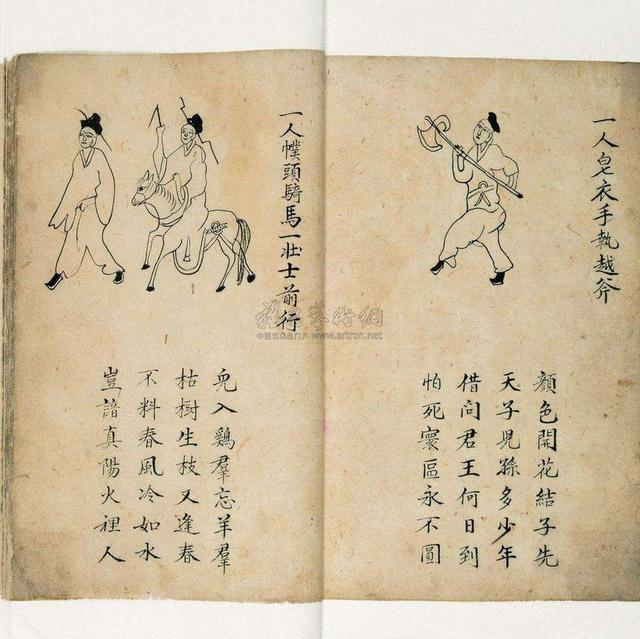 一人皂衣手執越斧
顏色開花結子先
天子児孫多少年
借问君王何日到
怕死寰區永不圓
一人幞頭騎馬一壮士前行
兎入鷄羣忘羊羣
枯樹生枝又逢春
不料春風冷如水
豈諳真陽火裡人
www.artron.net